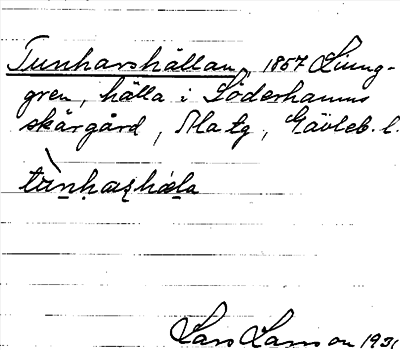 Tunharshällan, 1857 Ljung-
gren, hälla i Söderhamns
skärgård, Ala tg, Gävleb. l.
Lars Larsson 193